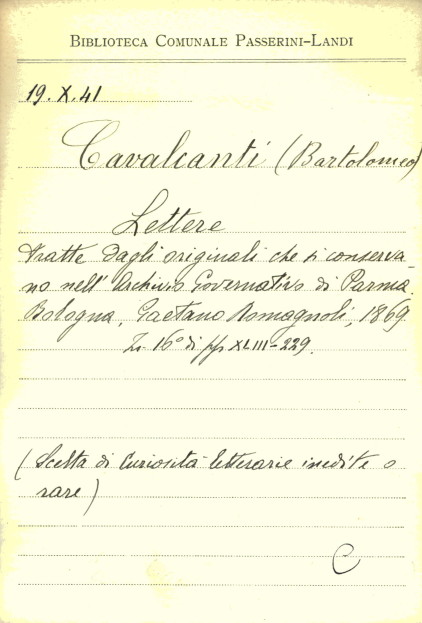 BIBLIOTECA COMUNALE PASSERINI-LANDI
19. X. 41
Cavalcanti (Bartolomeo)
Lettere
tratte dagli originali che si conserva-
no nell'Archivio Governativo di Parma.
Bologna, Gaetano Romagnoli, 1869.
In 16° di pp XLIII-229.
(Scelta di Curiosità letterarie inedite o
rare)
C